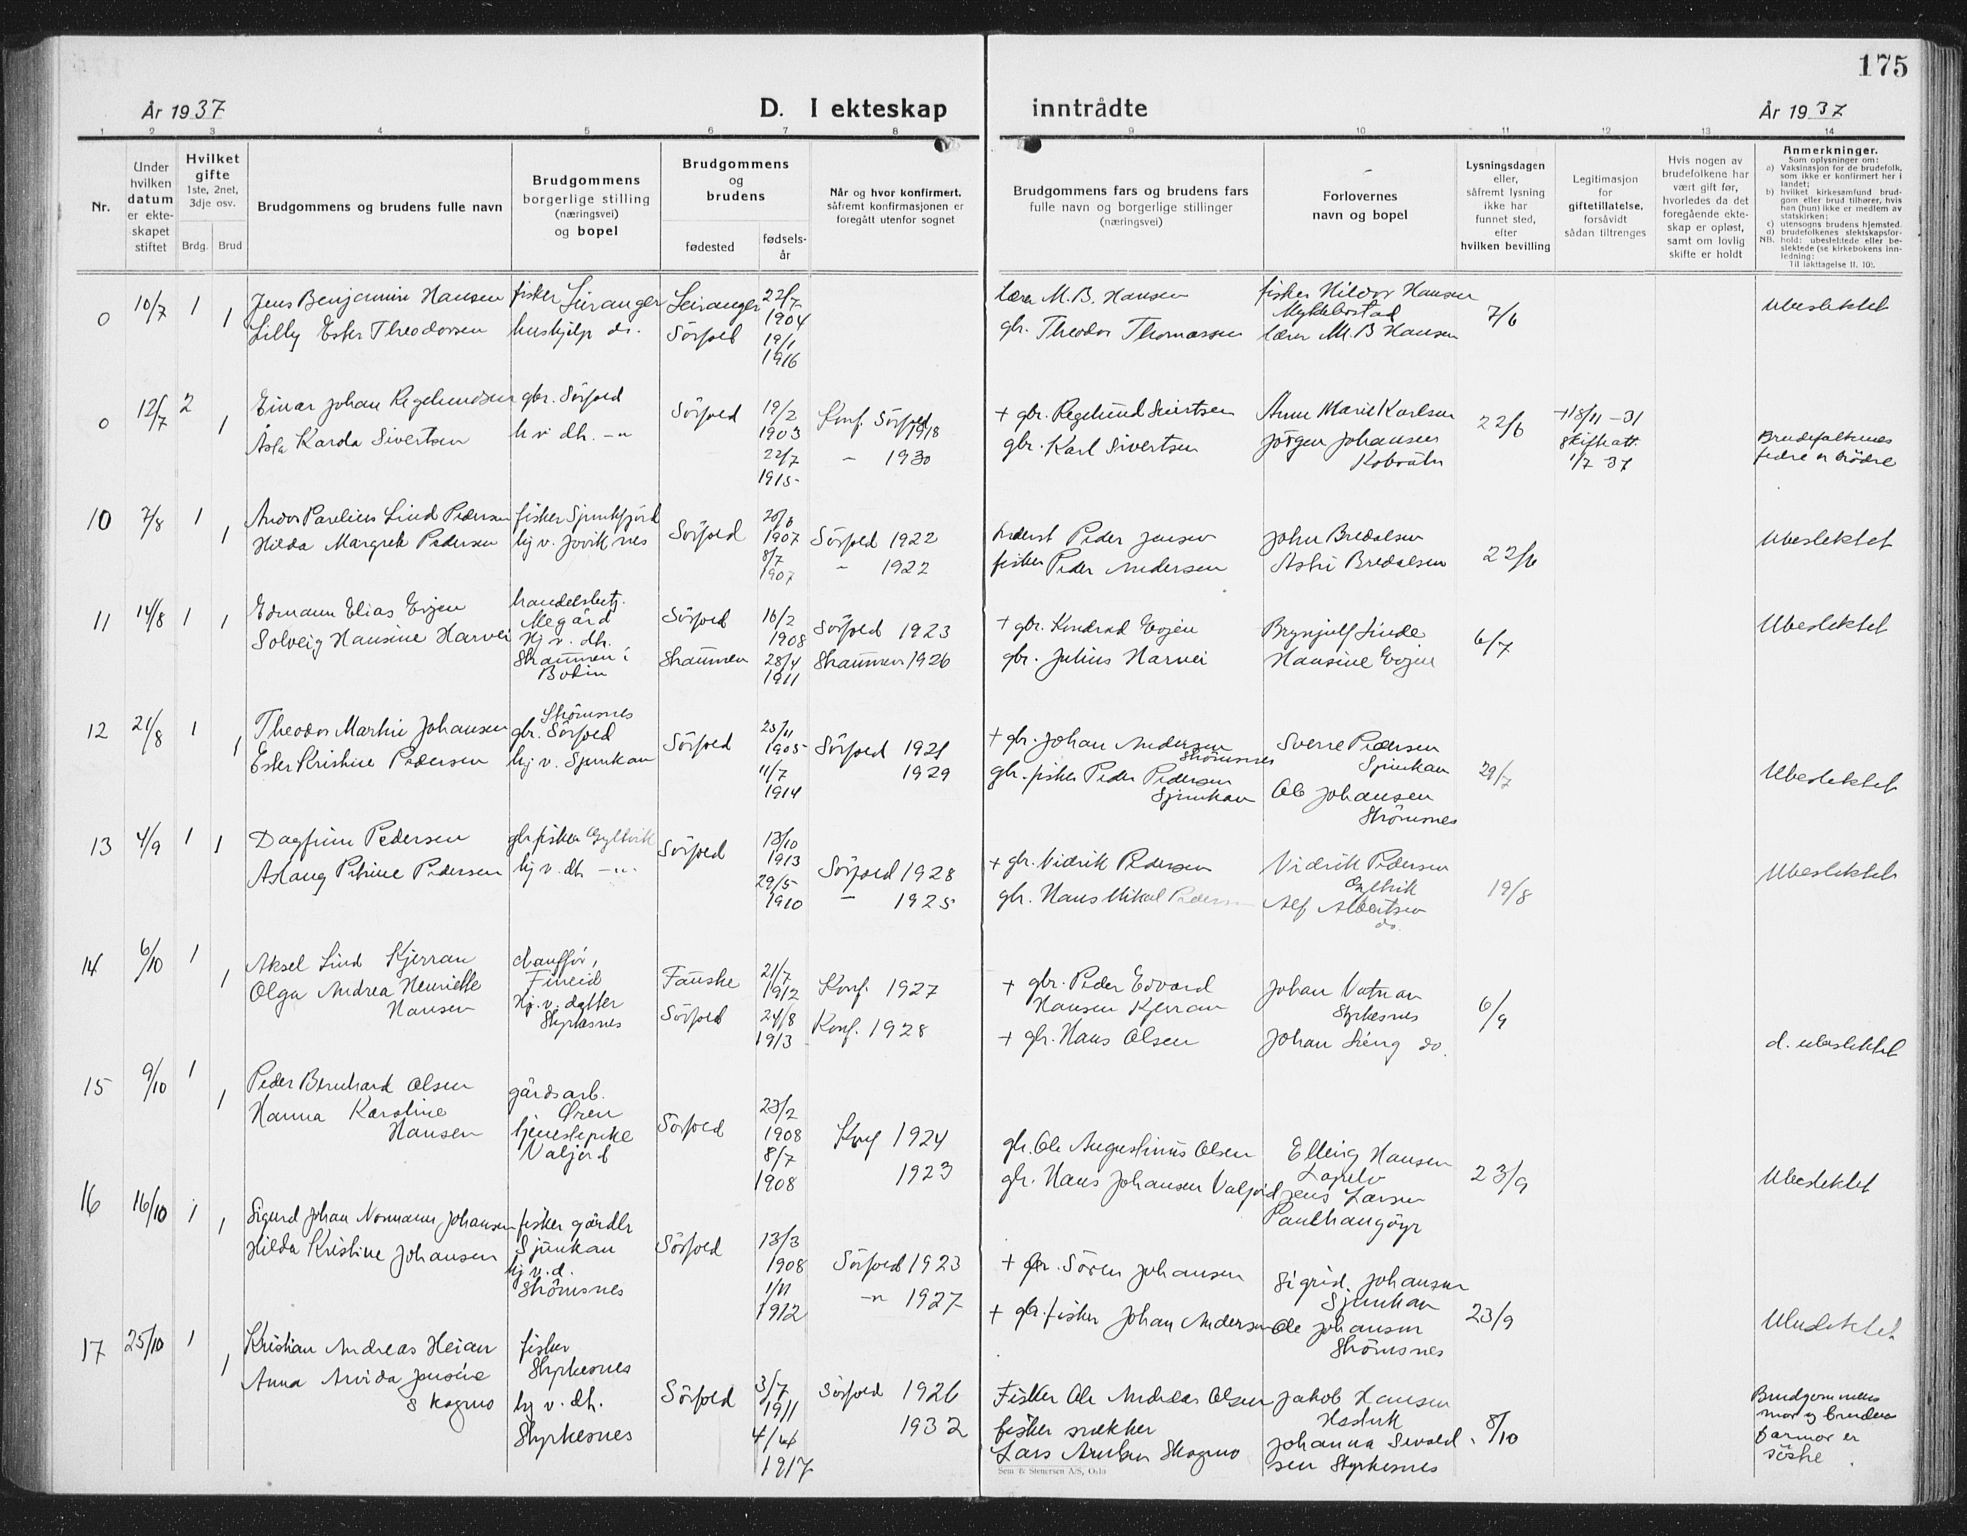 175
År 1937
D. I ekteskap
inntrådte
År 1937
1 2 3 4 5 6 7 8 9 10 11 12 13 14
Nr.
Under
hvilken
datum
er ekte-
skapet
stiftet
Hvilket
gifte
1ste, 2net,
3dje osv.
Brdg.
Brud
Brudgommens og brudens fulle navn
Brudgommens
borgerlige stilling
(næringsvei)
og bopel
Brudgommens
og
brudens
fødested
fødsels-
år
Når og hvor konfirmert,
såfremt konfirmasjonen er
foregått utenfor sognet
Brudgommens fars og brudens fars
fulle navn og borgerlige stillinger
(næringsvei)
Forlovernes
navn og bopel
Lysningsdagen
eller,
såfremt lysning
ikke har
funnet sted,
efter
hvilken bevilling
Legitimasjon
for
giftetillatelse,
forsåvidt
sådan tiltrenges
Hvis nogen av
brudefolkene har
vært gift før,
hvorledes da det
foregående ekte-
skap er opløst,
samt om lovlig
skifte er holdt
Anmerkninger.
Som oplysninger om:
a) Vaksinasjon for de brudefolk,
som ikke er konfirmert her i
landet;
b) hvilket kirkesamfund brud-
gom eller brud tilhører, hvis
han (hun) ikke er medlem av
statskirken;
c) utensogns brudens hjemsted.
d) brudefolkenes slektskapsfor-
NB. hold: ubeslektede eller be-
slektede (se kirkebokens inn-
ledning:
Til iakttagelse II. 10).
0 10/7 1 1
Jens Benjamin Hansen
Lilly Ester Theodorsen
fisker Leiranger
hushjelp do.
Leiranger
Sörfold
22/7
1904
19/1
1916
lærer M. B. Hansen
gbr. Theodor Thomassen
fisker Hildor Hansen
Myklebostad
lærer M. B Hansen
7/6
Ubeslektet
0 12/7 2 1
Einar Johan Regelundsen
Åsta Karda Sivertsen
gbr. Sörfold
h v. dh. -"
Sörfold
19/2
1903
22/7
1915
Konf. Sörfold
1918
" 1930
+ gbr. Regelund Sivertsen
gbr. Karl Sivertsen
Anne Marie Karlsen
Jörgen Johansen
Kobvatn
22/6
+18/11 - 31
Skifteatt.
1/7 37
Brudefolkenes
fedre er brödre
10 7/8 1 1
Andor Parelius Lind Pedersen
Hilda Margrete Pedersen
fisker Sjunkfjord
hj v. Jovik nes
Sörfold
1907
8/7
1907
Sörfold 1922
" 1922
Peder Jensen
fisker Peder Andersen
John Bredalsen
Astri Bredalsen
22/6
Ubeslektet
11 14/8 1 1
Edmann Elias Evjen
Solveig Hansine Harvei
handelsbetj.
Megård
Hj. v. dh.
Skaumen i
Bodin
Sörfold
Skaumen
16/2
1908
28/4
1911
Sörfold 1923
Skaumen 1926
+ gbr. Kondrad Evjen
gbr. Julius Harvei
Brynjulf Linde
Hansine Evjen
6/7
Ubeslektet
12 21/8 1 1
Theodor Martin Johansen
Ester Kristine Pedersen
Strömsnes
gbr. Sörfold
hj v. Sjunkan
Sörfold
1905
11/7
1914
Sörfold 1921
1929
+ gbr. Johan Andersen
Strömsnes
gbr. fisker Peder Pedersen
Sjunkan
Sverre Pedersen
Sjunkan
Ole Johansen
Strömsnes
29/7
Ubeslektet
13 4/9 1 1
Dagfinn Pedersen
Aslaug Petrine Pedersen
gbr fisker Gyltvik
hj v. dh -"-
Sörfold
13/10
1913
29/5
1910
Sörfold 1928
" 1925
+ gbr. Nidrik Pedersen
gbr. Hans Mikal Pedersen
Vidrik Pedersen
Gyltvik
Alf Albertsen
do.
19/8
Ubeslektet
14 6/10 1 1
Aksel Lind Kjerran
Olga Andrea Henriette
Hansen
chaufför,
Fineid
Hj. v. datter
Styrkesnes
Fauske
Sörfold
21/7
1912
24/8
1913
Konf. 1927
Konf. 1928
+ gbr. Peder Edvard
Hansen Kjerran
+ gbr. Hans Olsen
Johan Vatnan
Styrkesnes
Johan Lieng do.
6/9
d. ubeslektet
15 9/10 1 1
Peder Bernhard Olsen
Hanna Karoline
Hansen
gårdsarb.
Øren
tjenestepike
Valjord
Sörfold
23/2
1908
8/7
1908
Konf 1924
1923
gbr. Ole Augustinus Olsen
gbr. Hans Johansen Valjord
Elling Hansen
Lapelv
Jens Larsen
Paulhaugöyr
23/9
Ubeslektet
16 16/10 1 1
Sigurd Johan Normann Johansen
Hilda Kristine Johansen
fisker gårdbr
Sjunkan
hj v. d.
Strömsnes
Sörfold
13/3
1908
1/11
1912
Sörfold 1923
-" 1927
+ gbr. Sören Johansen
+ gbr. fisker Johan Andersen
Sigrid. Johansen
Sjunkan
Ole Johansen
Strömsnes
23/9
Ubeslektet
17 25/10 1 1
Kristian Andreas Heian
Anna Arvida Jensine
Skogmo
fisker
Styrkesnes
hj v. dh.
Styrkesnes
Sörfold
3/7
1911
4/4
1917
Sörfold 1926
1932
Fisker Ole Andreas Olsen
fisker snekker
Lars Skogmo
Jakob Hansen
Johanna Sivald
sen Styrkesnes
8/10
Brudgommens
mor og brudens
farmor er
söstre.
Sem & Stenersen A/S, Oslo